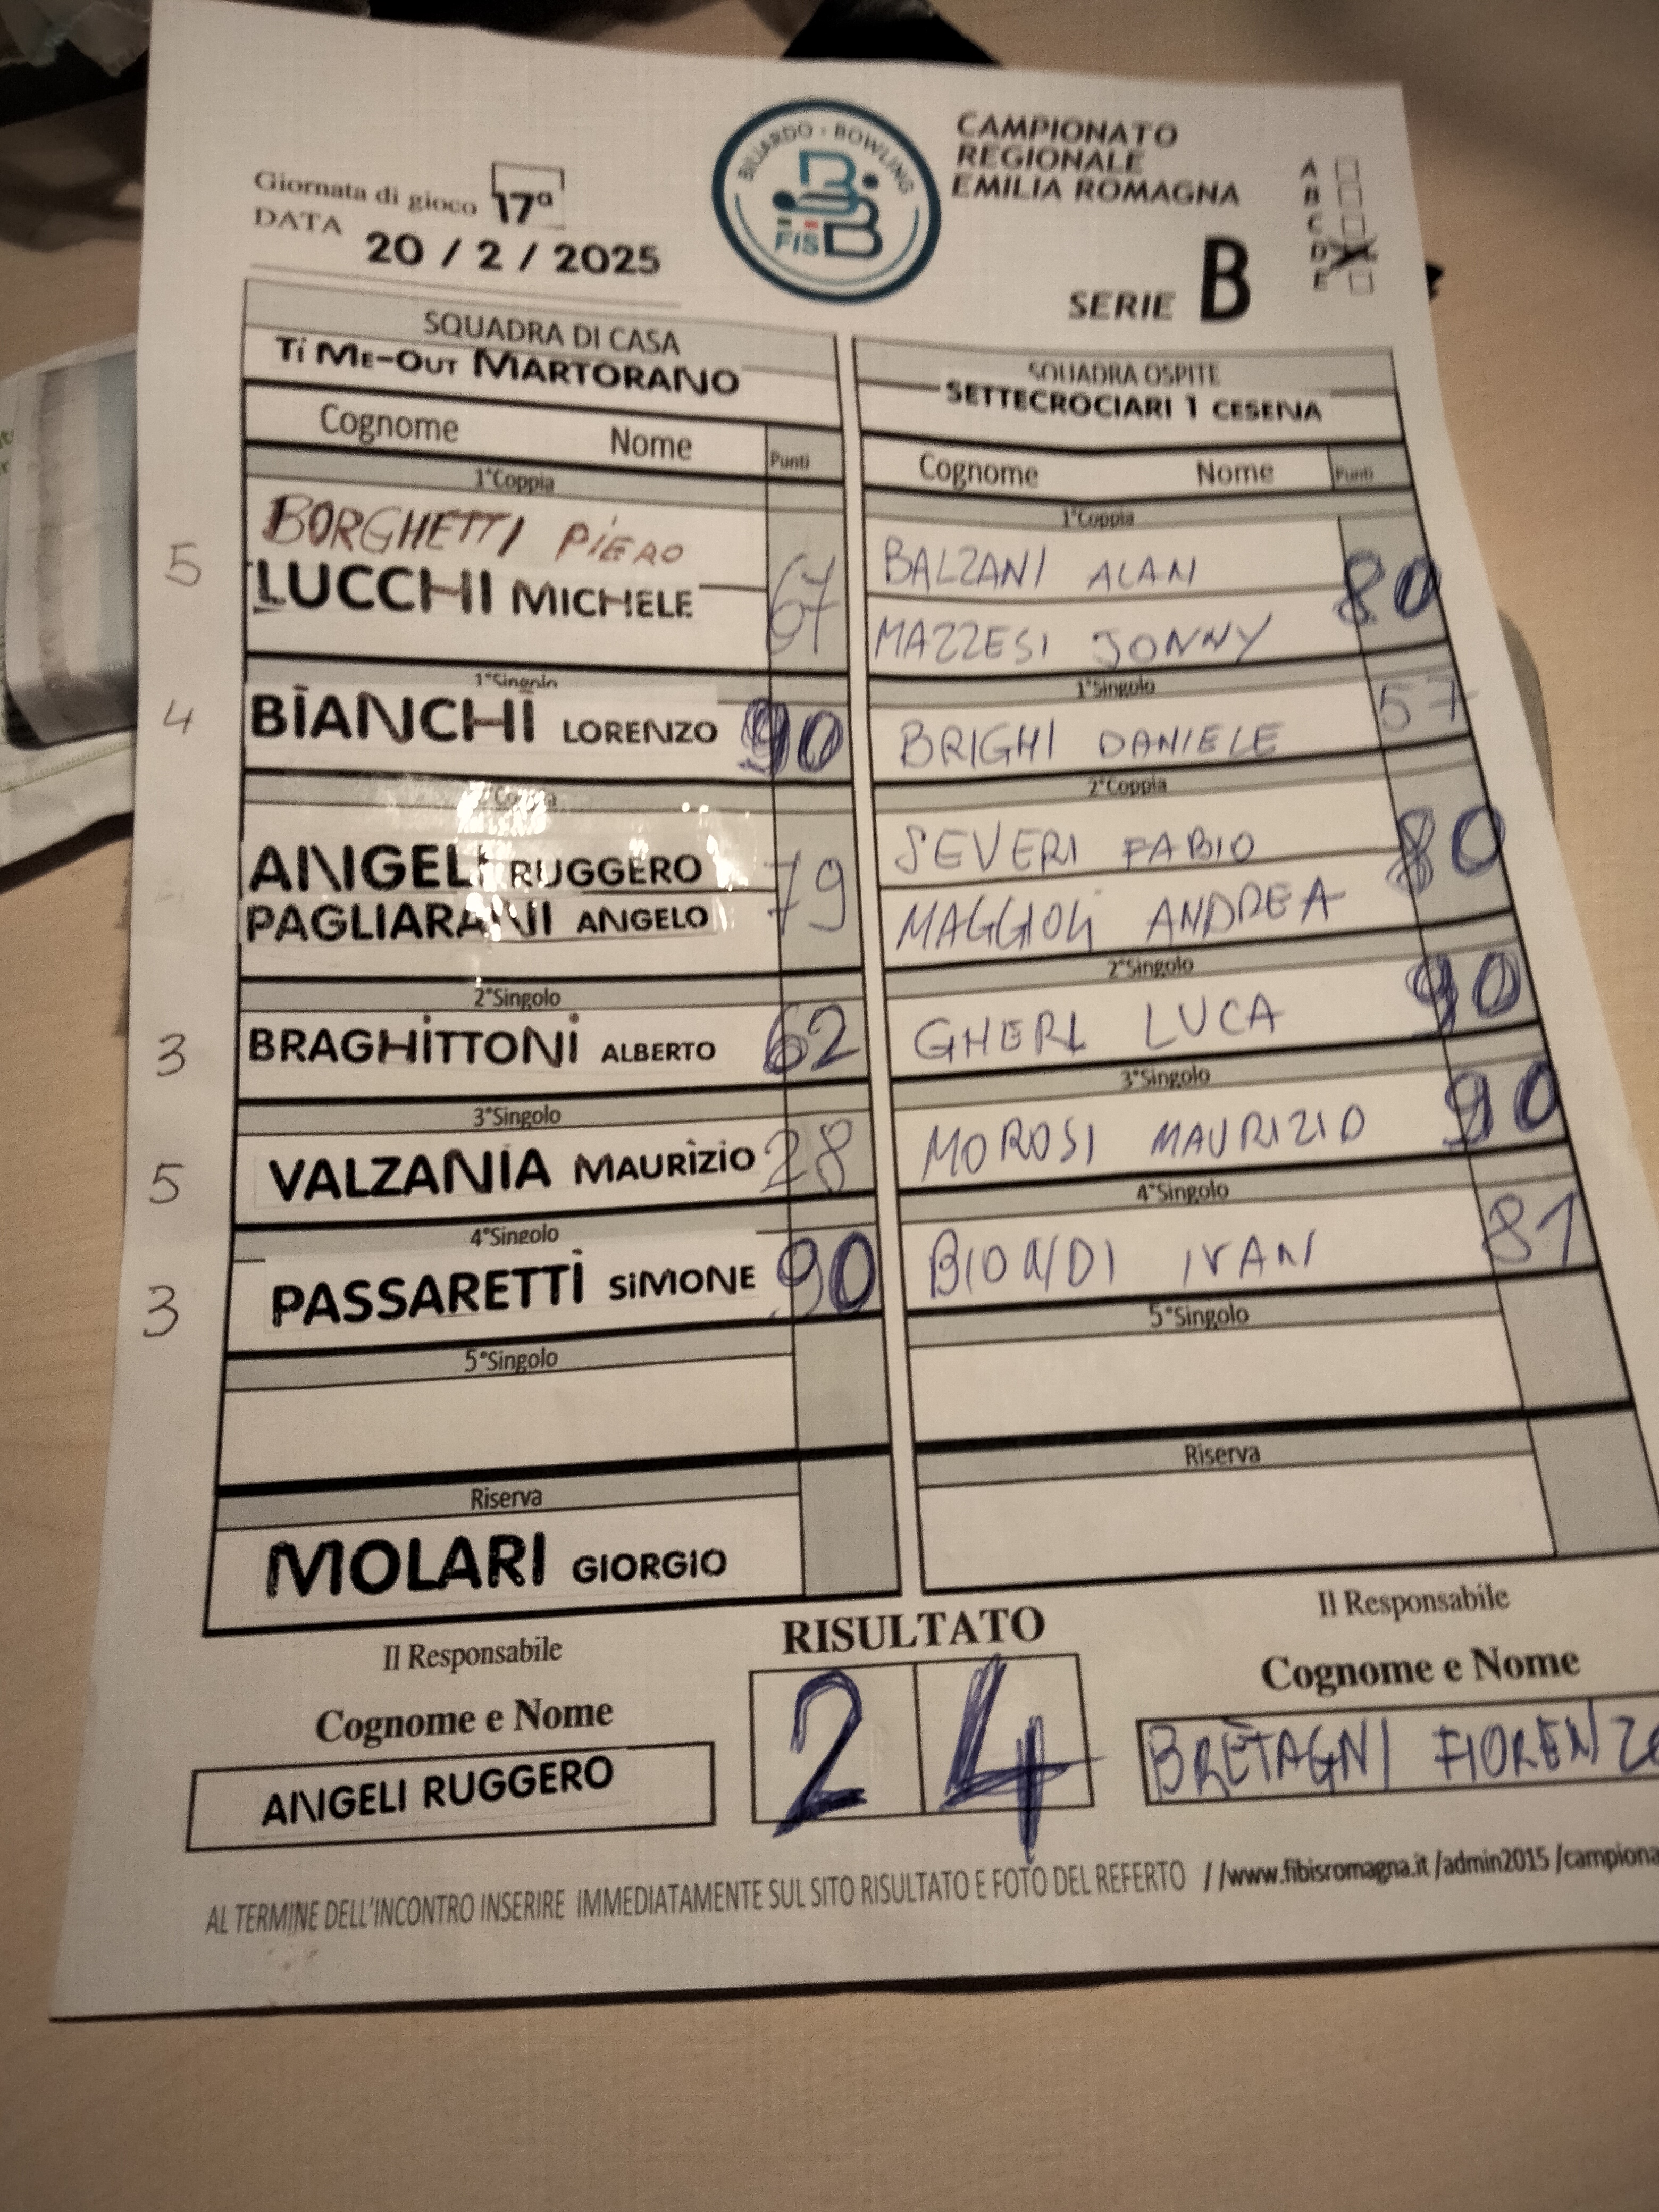 Giornata di gioco 17ª
DATA 20 / 2 / 2025
BILIARDO - BOWLING
FISBB
CAMPIONATO
REGIONALE
EMILIA ROMAGNA
SERIE B
A
B
C
D
E
SQUADRA DI CASA
TiME-OUT MARTORANO
Cognome Nome Punti
1°Coppia
BORGHETTI PiERO
5 LUCCHI MICHELE 67
1°Singolo
4 BIANCHI LORENZO 90
2°Coppia
ANGELI RUGGERO
PAGLIARANI ANGELO 79
2°Singolo
3 BRAGHiTTONi ALBERTO 62
3°Singolo
5 VALZANIA MAURIZIO 28
4°Singolo
3 PASSARETTI SiMONE 90
5°Singolo
Riserva
MOLARI GIORGIO
SQUADRA OSPITE
SETTECROCIARI 1 CESENA
Cognome Nome Punti
1°Coppia
BALZANI ALAN
MAZZESI JONNY 80
1°Singolo
BRIGHI DANIELE 57
2°Coppia
SEVERI FABIO
MAGGIOLI ANDREA 80
2°Singolo
GHERI LUCA 90
3°Singolo
MOROSI MAURIZIO 90
4°Singolo
BIONDI IVAN 81
5°Singolo
Riserva
Il Responsabile
Cognome e Nome
ANGELI RUGGERO
RISULTATO
2 4
Il Responsabile
Cognome e Nome
BRETAGNI FIORENZO
AL TERMINE DELL'INCONTRO INSERIRE IMMEDIATAMENTE SUL SITO RISULTATO E FOTO DEL REFERTO //www.fibisromagna.it /admin2015 /campiona